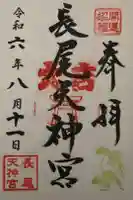 奉拝
長尾天神宮
令和六年八月十一日
長尾
天神宮